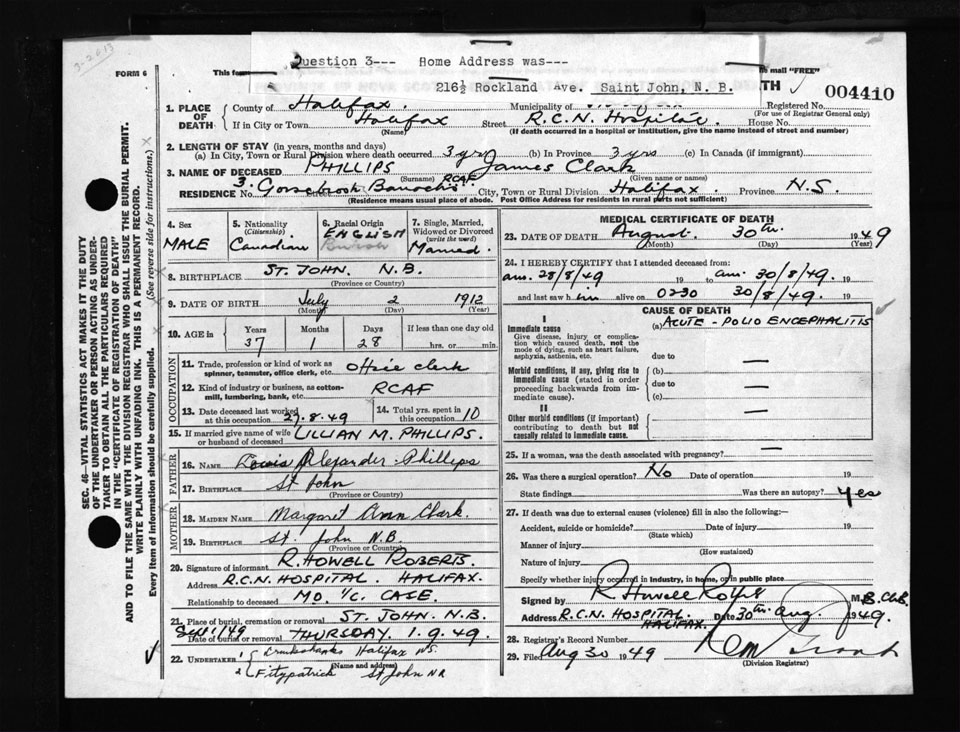 3-2613
Question 3--- Home Address was---
216½ Rockland Ave. Saint John, N. B.
FORM 6
This for
mail "FREE"
TH
004410
1. PLACE OF DEATH County of Halifax. Municipality of Registered No.
(For use of Registrar General only)
If in City or Town Halifax Street R.C.N. Hospital House No.
(Name) (If death occurred in a hospital or institution, give the name instead of street and number)
2. LENGTH OF STAY (in years, months and days)
(a) In City, Town or Rural Division where death occurred 3 yrs (b) In Province 3 yrs (c) In Canada (if immigrant)
3. NAME OF DECEASED PHILLIPS James Clark
(Surname) RCAF (Given name or names)
RESIDENCE No. 3. City, Town or Rural Division Halifax Province N.S.
(Residence means usual place of abode. Post Office Address for residents in rural parts not sufficient)
4. Sex MALE
5. Nationality (Citizenship) Canadian
6. Racial Origin ENGLISH
7. Single, Married, Widowed or Divorced (write the word) Married.
8. BIRTHPLACE ST. JOHN. N.B.
(Province or Country)
9. DATE OF BIRTH July 2 1912
(Month) (Day) (Year)
10. AGE in Years 37 Months 1 Days 28 If less than one day old hrs. or min.
OCCUPATION
11. Trade, profession or kind of work as spinner, teamster, office clerk, etc. Office clerk
12. Kind of industry or business, as cotton-mill, lumbering, bank, etc. RCAF
13. Date deceased last worked at this occupation 27.8.49
14. Total yrs. spent in this occupation 10
15. If married give name of wife or husband of deceased LILLIAN M. PHILLIPS.
FATHER
16. NAME Louis Alexander Phillips
17. BIRTHPLACE St John
(Province or Country)
MOTHER
18. MAIDEN NAME Margaret Ann Clark.
19. BIRTHPLACE St. John N.B.
(Province or Country)
20. Signature of informant R. HOWELL ROBERTS.
Address R.C.N. HOSPITAL. HALIFAX.
Relationship to deceased MO. I/C. CASE.
21. Place of burial, cremation or removal ST. JOHN. N.B.
Sept 1/49
Date of burial or removal THURSDAY. 1.9.49.
22. UNDERTAKER 1 Cruikshanks Halifax NS.
(Name and address)
2 Fitzpatrick St John NB
MEDICAL CERTIFICATE OF DEATH
23. DATE OF DEATH August. 30th. 1949
(Month) (Day) (Year)
24. I HEREBY CERTIFY that I attended deceased from:
am. 28/8/49 19 to am. 30/8/49. 19
and last saw him alive on 0230 30/8/49. 19
CAUSE OF DEATH
I
Immediate cause
Give disease, injury or complication which caused death, not the mode of dying, such as heart failure, asphyxia, asthenia, etc.
(a) ACUTE - POLIO ENCEPHALITIS
due to —
Morbid conditions, if any, giving rise to immediate cause (stated in order proceeding backwards from immediate cause).
(b)
due to —
(c)
II
Other morbid conditions (if important) contributing to death but not causally related to immediate cause.
—
25. If a woman, was the death associated with pregnancy? —
26. Was there a surgical operation? No Date of operation 19
State findings Was there an autopsy? Yes
27. If death was due to external causes (violence) fill in also the following:—
Accident, suicide or homicide? Date of injury 19
(State which)
Manner of injury
(How sustained)
Nature of injury
Specify whether injury occurred in industry, in home, or in public place
Signed by R Howell M.B. Ch.B.
Address R.C.N. HOSPITAL. HALIFAX. Date 30th Aug. 1949.
28. Registrar's Record Number
29. Filed Aug 30 1949
(Division Registrar)
SEC. 46—VITAL STATISTICS ACT MAKES IT THE DUTY
OF THE UNDERTAKER OR PERSON ACTING AS UNDER-
TAKER TO OBTAIN ALL THE PARTICULARS REQUIRED
IN THE "CERTIFICATE OF REGISTRATION OF DEATH"
AND TO FILE THE SAME WITH THE DIVISION REGISTRAR WHO SHALL ISSUE THE BURIAL PERMIT.
WRITE PLAINLY WITH UNFADING INK. THIS IS A PERMANENT RECORD.
Every item of information should be carefully supplied. (See reverse side for instructions.)